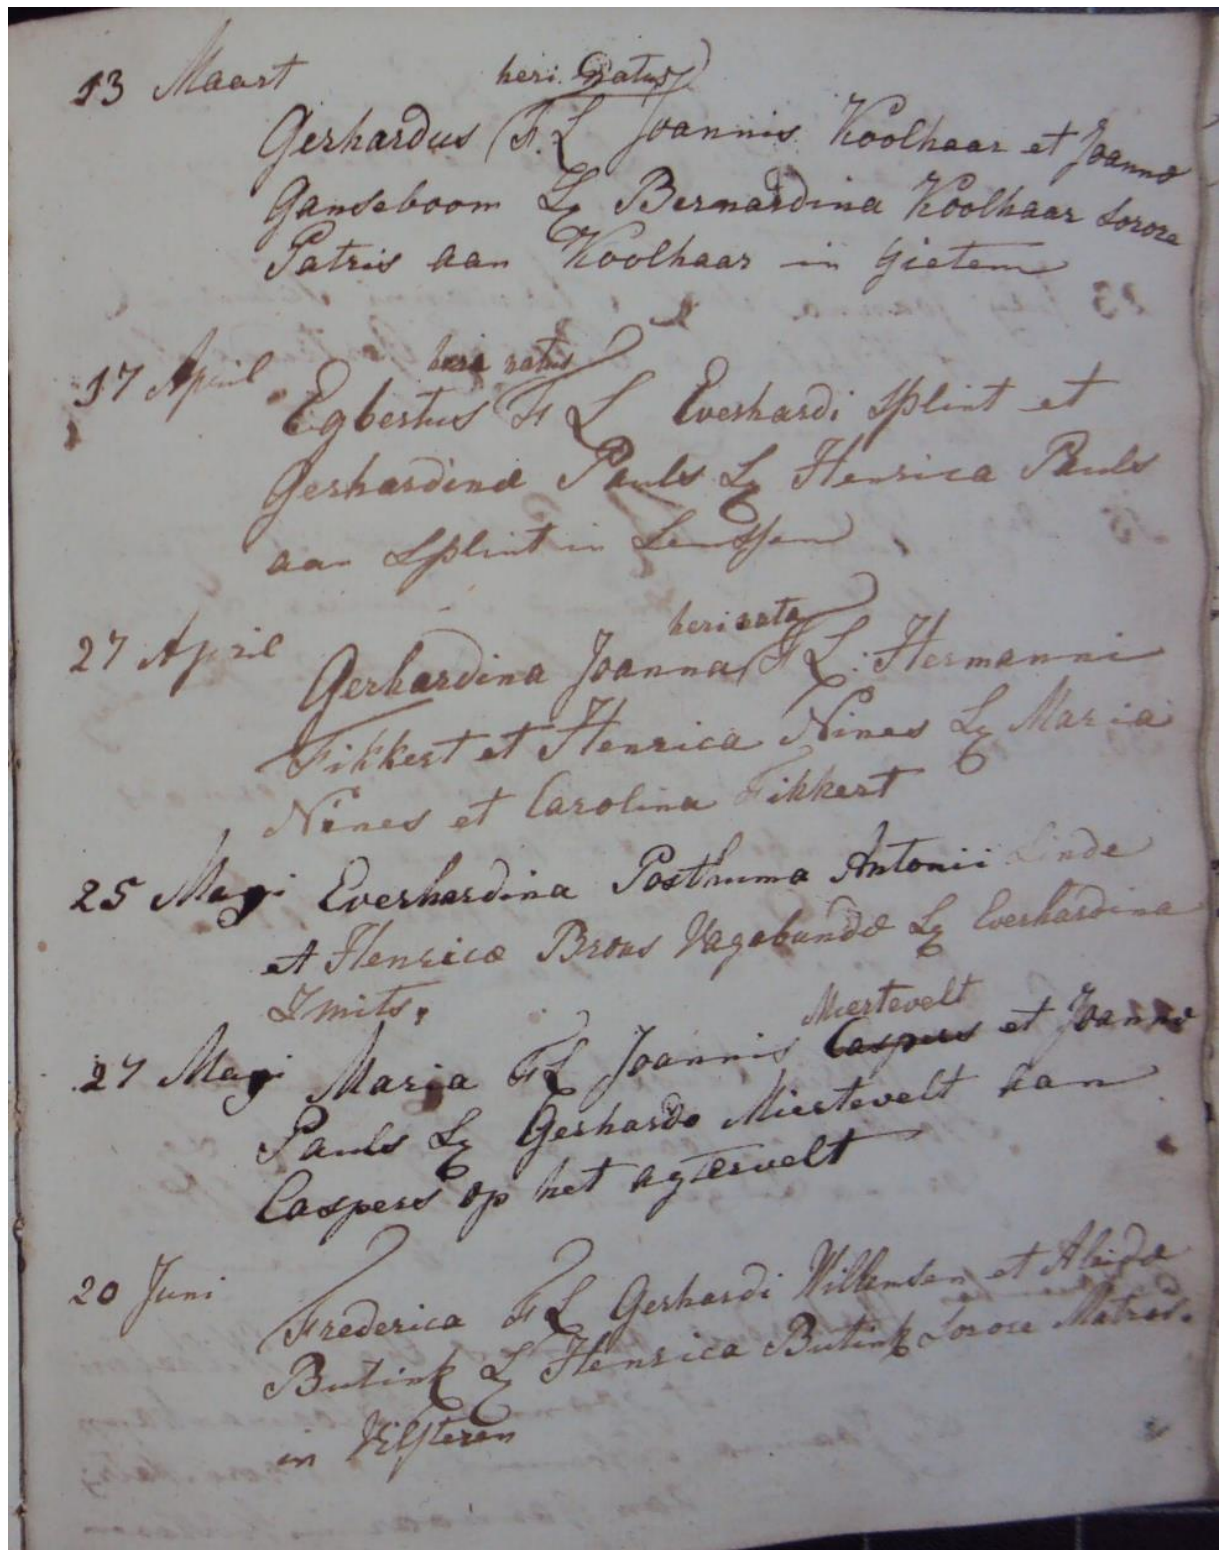 13 Maart heri natus
Gerhardus F. L Joannis Koolhaar et Joannæ
Ganseboom Lq Bernardina Koolhaar Sorore
Patris aan Koolhaar in Gietem
17 April heri natus
Egbertus F L Everhardi Splint et
Gerhardinæ Pauls Lq Henrica Pauls
aan Splint in
27 April heri nata
Gerhardina Joanna F L: Hermanni
Fikkert et Henrica Nines Lq Maria
Nines et Carolina Fikkert
25 Mayi Everhardina Posthuma Antonii Linde
et Henricæ Brous Vagabundæ Lq Everhardina
Smits.
Miertevelt
27 Mayi Maria F L Joannis Caspers et Joannæ
Pauls Lq Gerhardo Miertevelt aan
Caspers op het agtervelt
20 Juni
Frederica F L Gerhardi Willemsen et Aleidæ
Butink Lq Henrica Butink Sorore Matris.
in Vilsteren